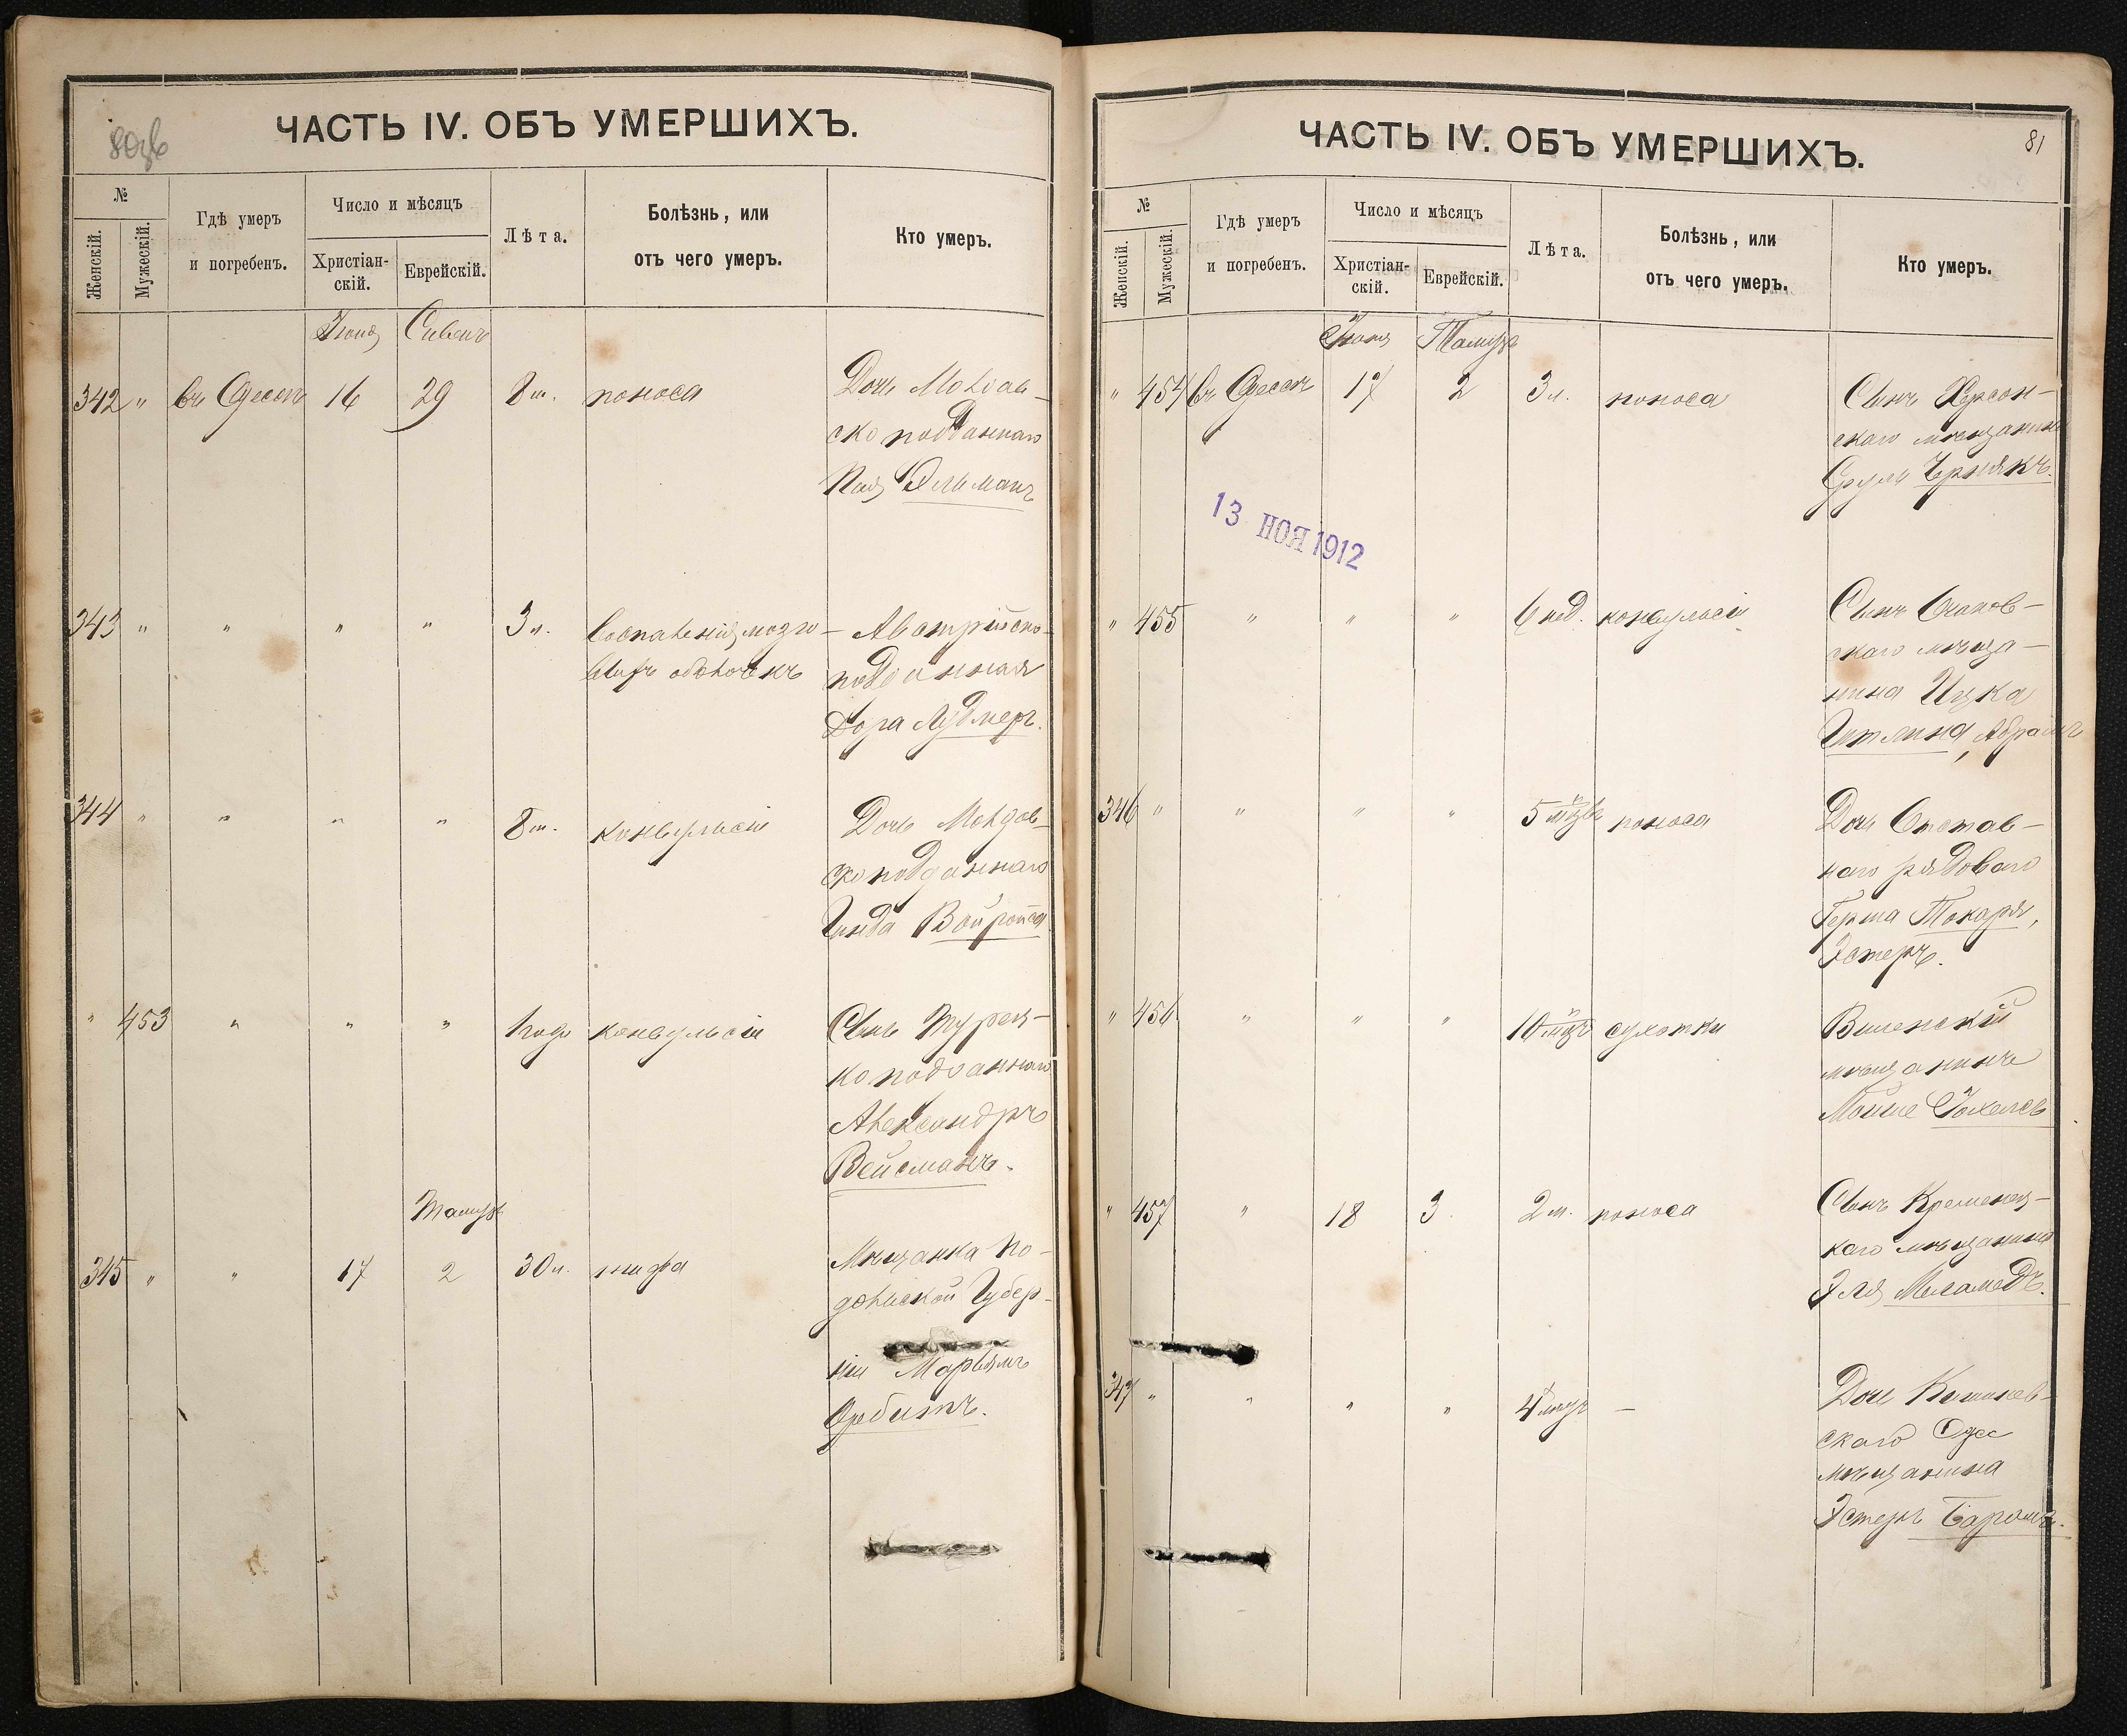 80об
ЧАСТЬ IV. ОБЪ УМЕРШИХЪ.
№
Женскій.
Мужескій.
Гдѣ умеръ
и погребенъ.
Число и мѣсяцъ
Христіан-
скій.
Еврейскій.
Лѣта.
Болѣзнь, или
отъ чего умеръ.
Кто умеръ.
Іюня Сиванъ
342 " въ Одессѣ 16 29 8 м. поноса Дочь Молдав-
ско подданнаго
Эльманъ
343 " " " " 3 л. Воспаленія мозго-
выхъ оболочекъ
Австрійско-
подданная
Дора Лудмеръ.
344 " " " " 8 м. конвульсіи Дочь Молдов-
ско подданнаго
Гинда Вайройса
" 453 " " " 1 годъ конвульсіи Сынъ Турец-
ко подданнаго
Александръ
Вейсманъ.
Тамузъ
345 " " 17 2 30 л. тифа Мѣщанка По-
дольской Губер-
ніи Марьямъ
81
ЧАСТЬ IV. ОБЪ УМЕРШИХЪ.
№
Женскій.
Мужескій.
Гдѣ умеръ
и погребенъ.
Число и мѣсяцъ
Христіан-
скій.
Еврейскій.
Лѣта.
Болѣзнь, или
отъ чего умеръ.
Кто умеръ.
Іюня Тамузъ
" 454 въ Одессѣ 17 2 3 л. поноса Сынъ Херсон-
скаго мѣщанина
Срулъ Чернякъ.
13 НОЯ 1912
" 455 " " " 6 нед. конвульсіи Сынъ Очаков-
скаго мѣща-
нина Ицка
Гитлина, Абрамъ
346 " " " " 5 мѣс. поноса Дочь Отстав-
наго рядоваго
Герша Токаря,
Эстеръ.
" 456 " " " 10 мѣс. сухотки Виленскій
мѣщанинъ
Мойше
" 457 " 18 3 2 м. поноса Сынъ Кременец-
каго мѣщанина
Эля Меламедъ.
347 " " " " 4 мѣс. — Дочь Кишинев-
скаго Одес
мѣщанина
Эстеръ